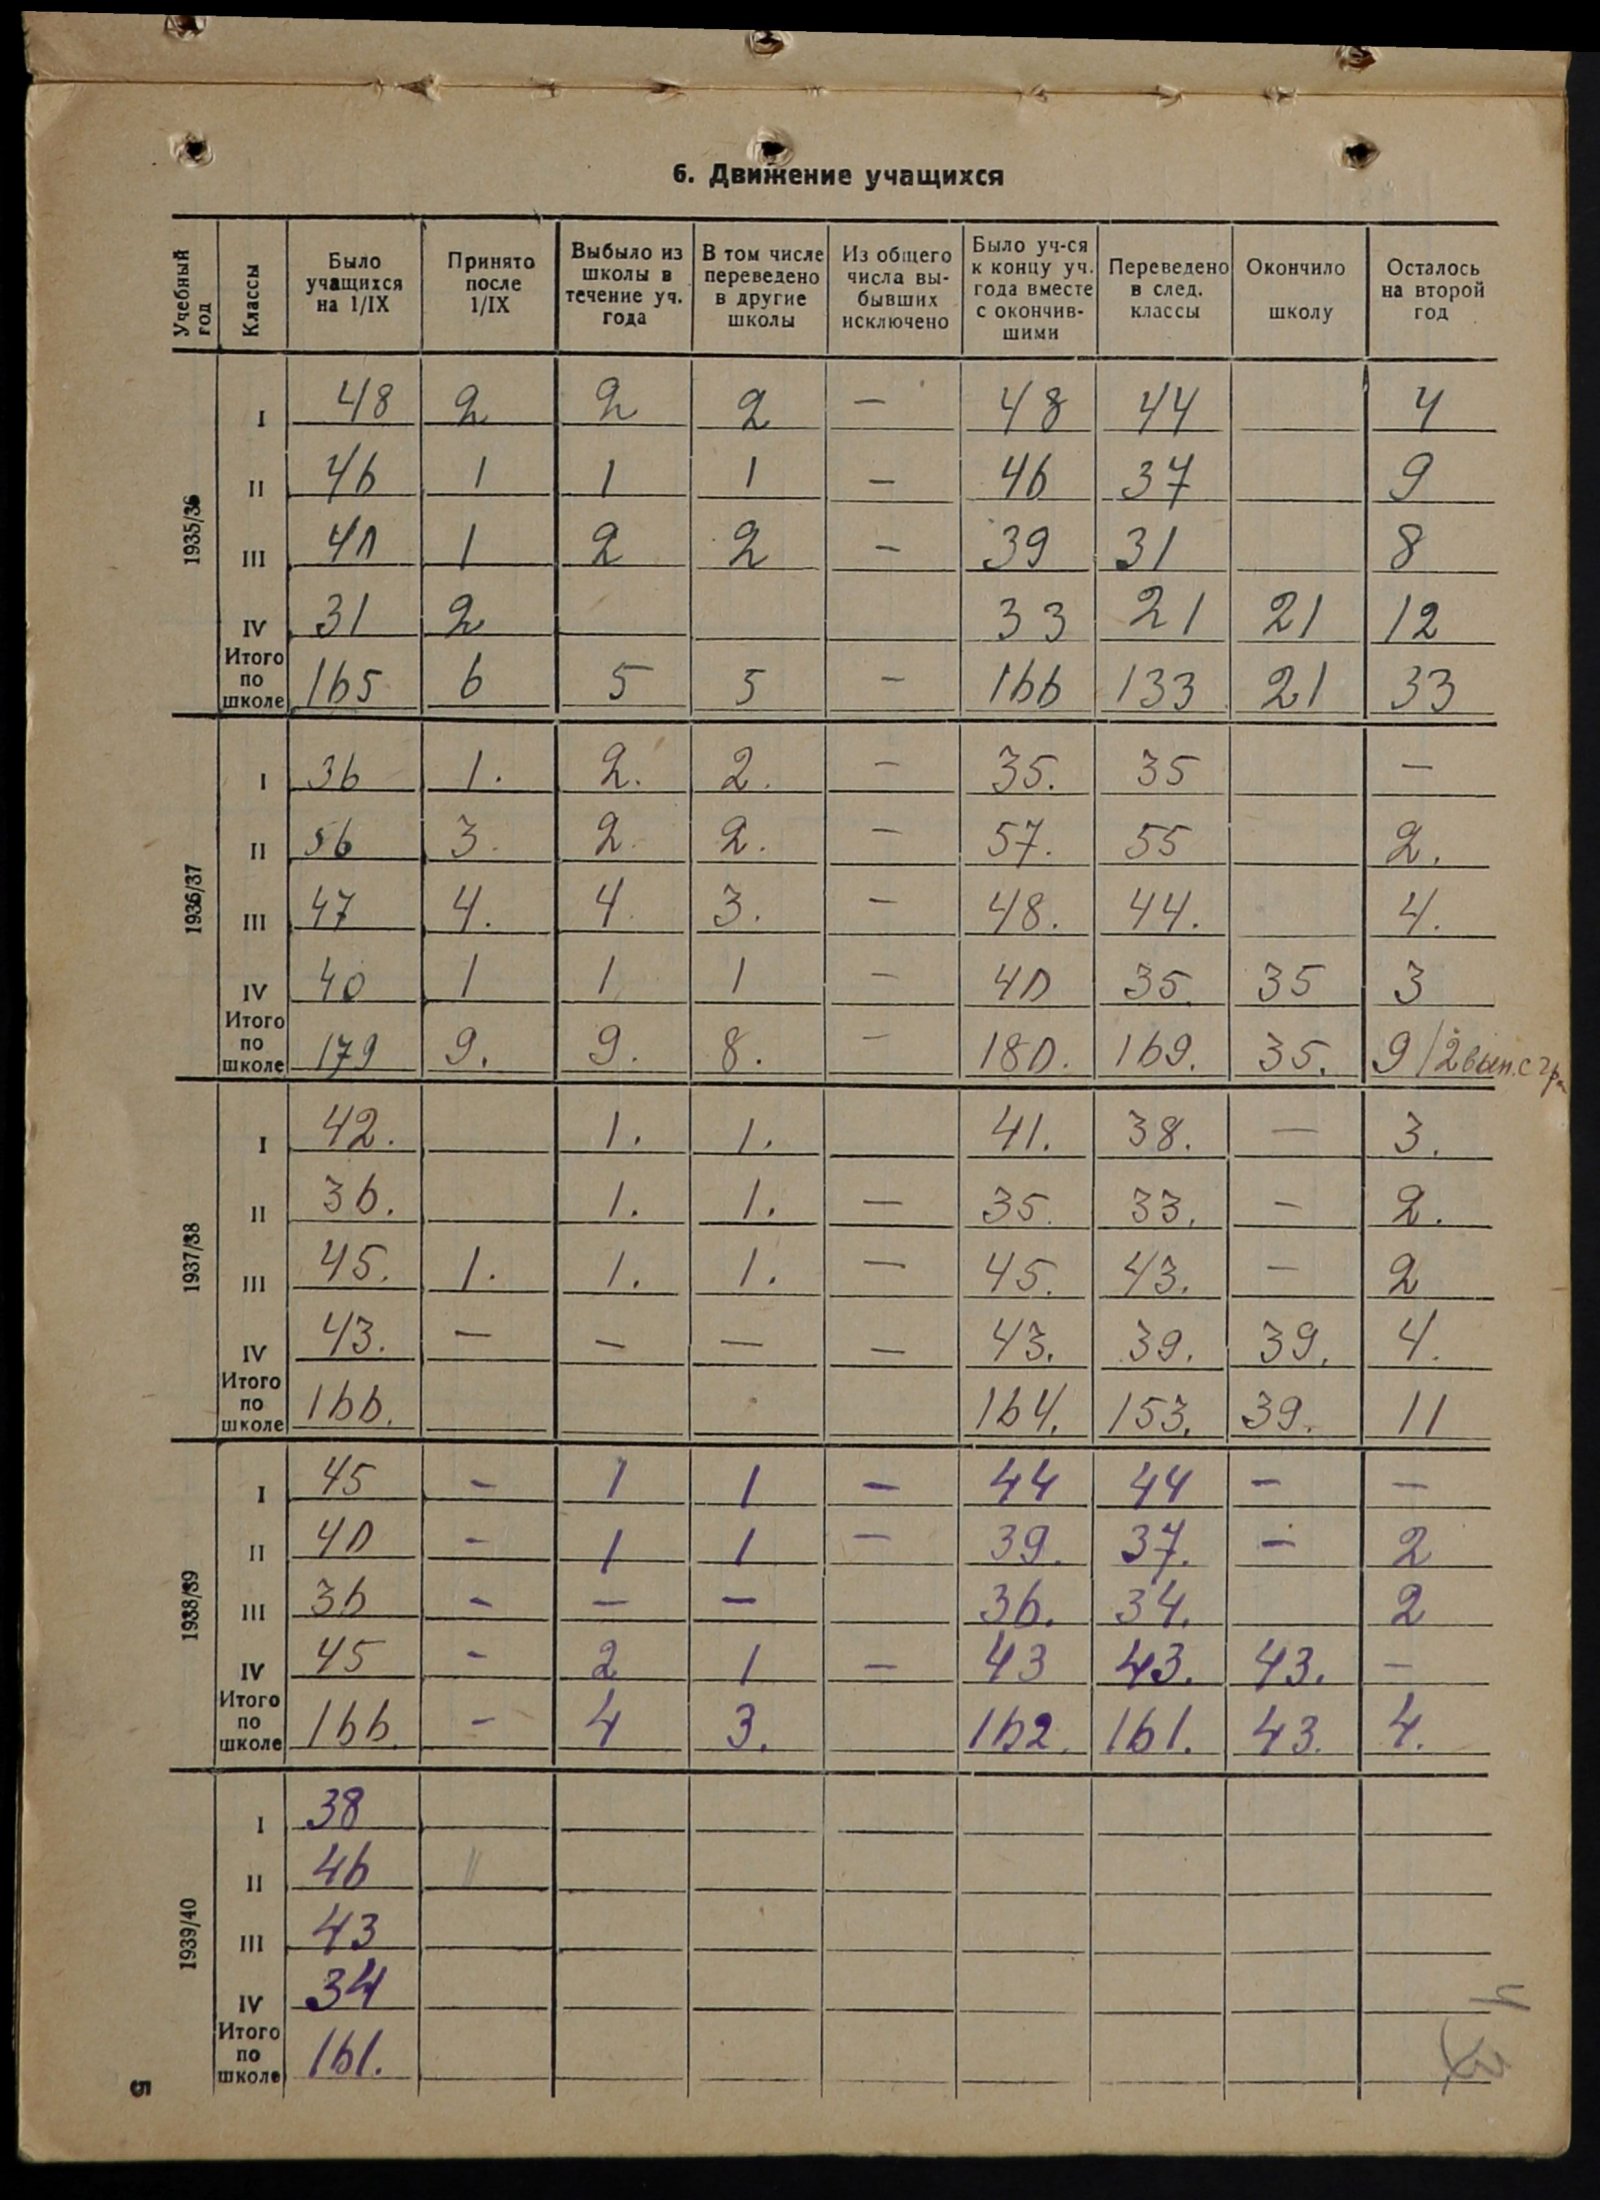 6. Движение учащихся
Учебный год | Классы | Было учащихся на 1/IX | Принято после 1/IX | Выбыло из школы в течение уч. года | В том числе переведено в другие школы | Из общего числа выбывших исключено | Было уч-ся к концу уч. года вместе с окончившими | Переведено в след. классы | Окончило школу | Осталось на второй год
1935/36
I | 48 | 2 | 2 | 2 | — | 48 | 44 | | 4
II | 46 | 1 | 1 | 1 | — | 46 | 37 | | 9
III | 40 | 1 | 2 | 2 | — | 39 | 31 | | 8
IV | 31 | 2 | | | | 33 | 21 | 21 | 12
Итого по школе | 165 | 6 | 5 | 5 | — | 166 | 133 | 21 | 33
1936/37
I | 36 | 1. | 2. | 2. | — | 35. | 35 | | —
II | 56 | 3. | 2. | 2. | — | 57. | 55 | | 2.
III | 47 | 4. | 4. | 3. | — | 48. | 44. | | 4.
IV | 40 | 1 | 1 | 1 | — | 40 | 35. | 35 | 3
Итого по школе | 179 | 9. | 9. | 8. | — | 180. | 169. | 35. | 9/2 вып. с
1937/38
I | 42. | | 1. | 1. | | 41. | 38. | — | 3.
II | 36. | | 1. | 1. | — | 35. | 33. | — | 2.
III | 45. | 1. | 1. | 1. | — | 45. | 43. | — | 2
IV | 43. | — | — | — | — | 43. | 39. | 39. | 4.
Итого по школе | 166. | | | | | 164. | 153. | 39. | 11
1938/39
I | 45 | - | 1 | 1 | — | 44 | 44 | — | —
II | 40 | - | 1 | 1 | — | 39. | 37. | — | 2
III | 36 | - | — | — | | 36. | 34. | | 2
IV | 45 | - | 2 | 1 | — | 43 | 43. | 43. | —
Итого по школе | 166. | - | 4 | 3. | | 162. | 161. | 43. | 4.
1939/40
I | 38
II | 46
III | 43
IV | 34
Итого по школе | 161.
5